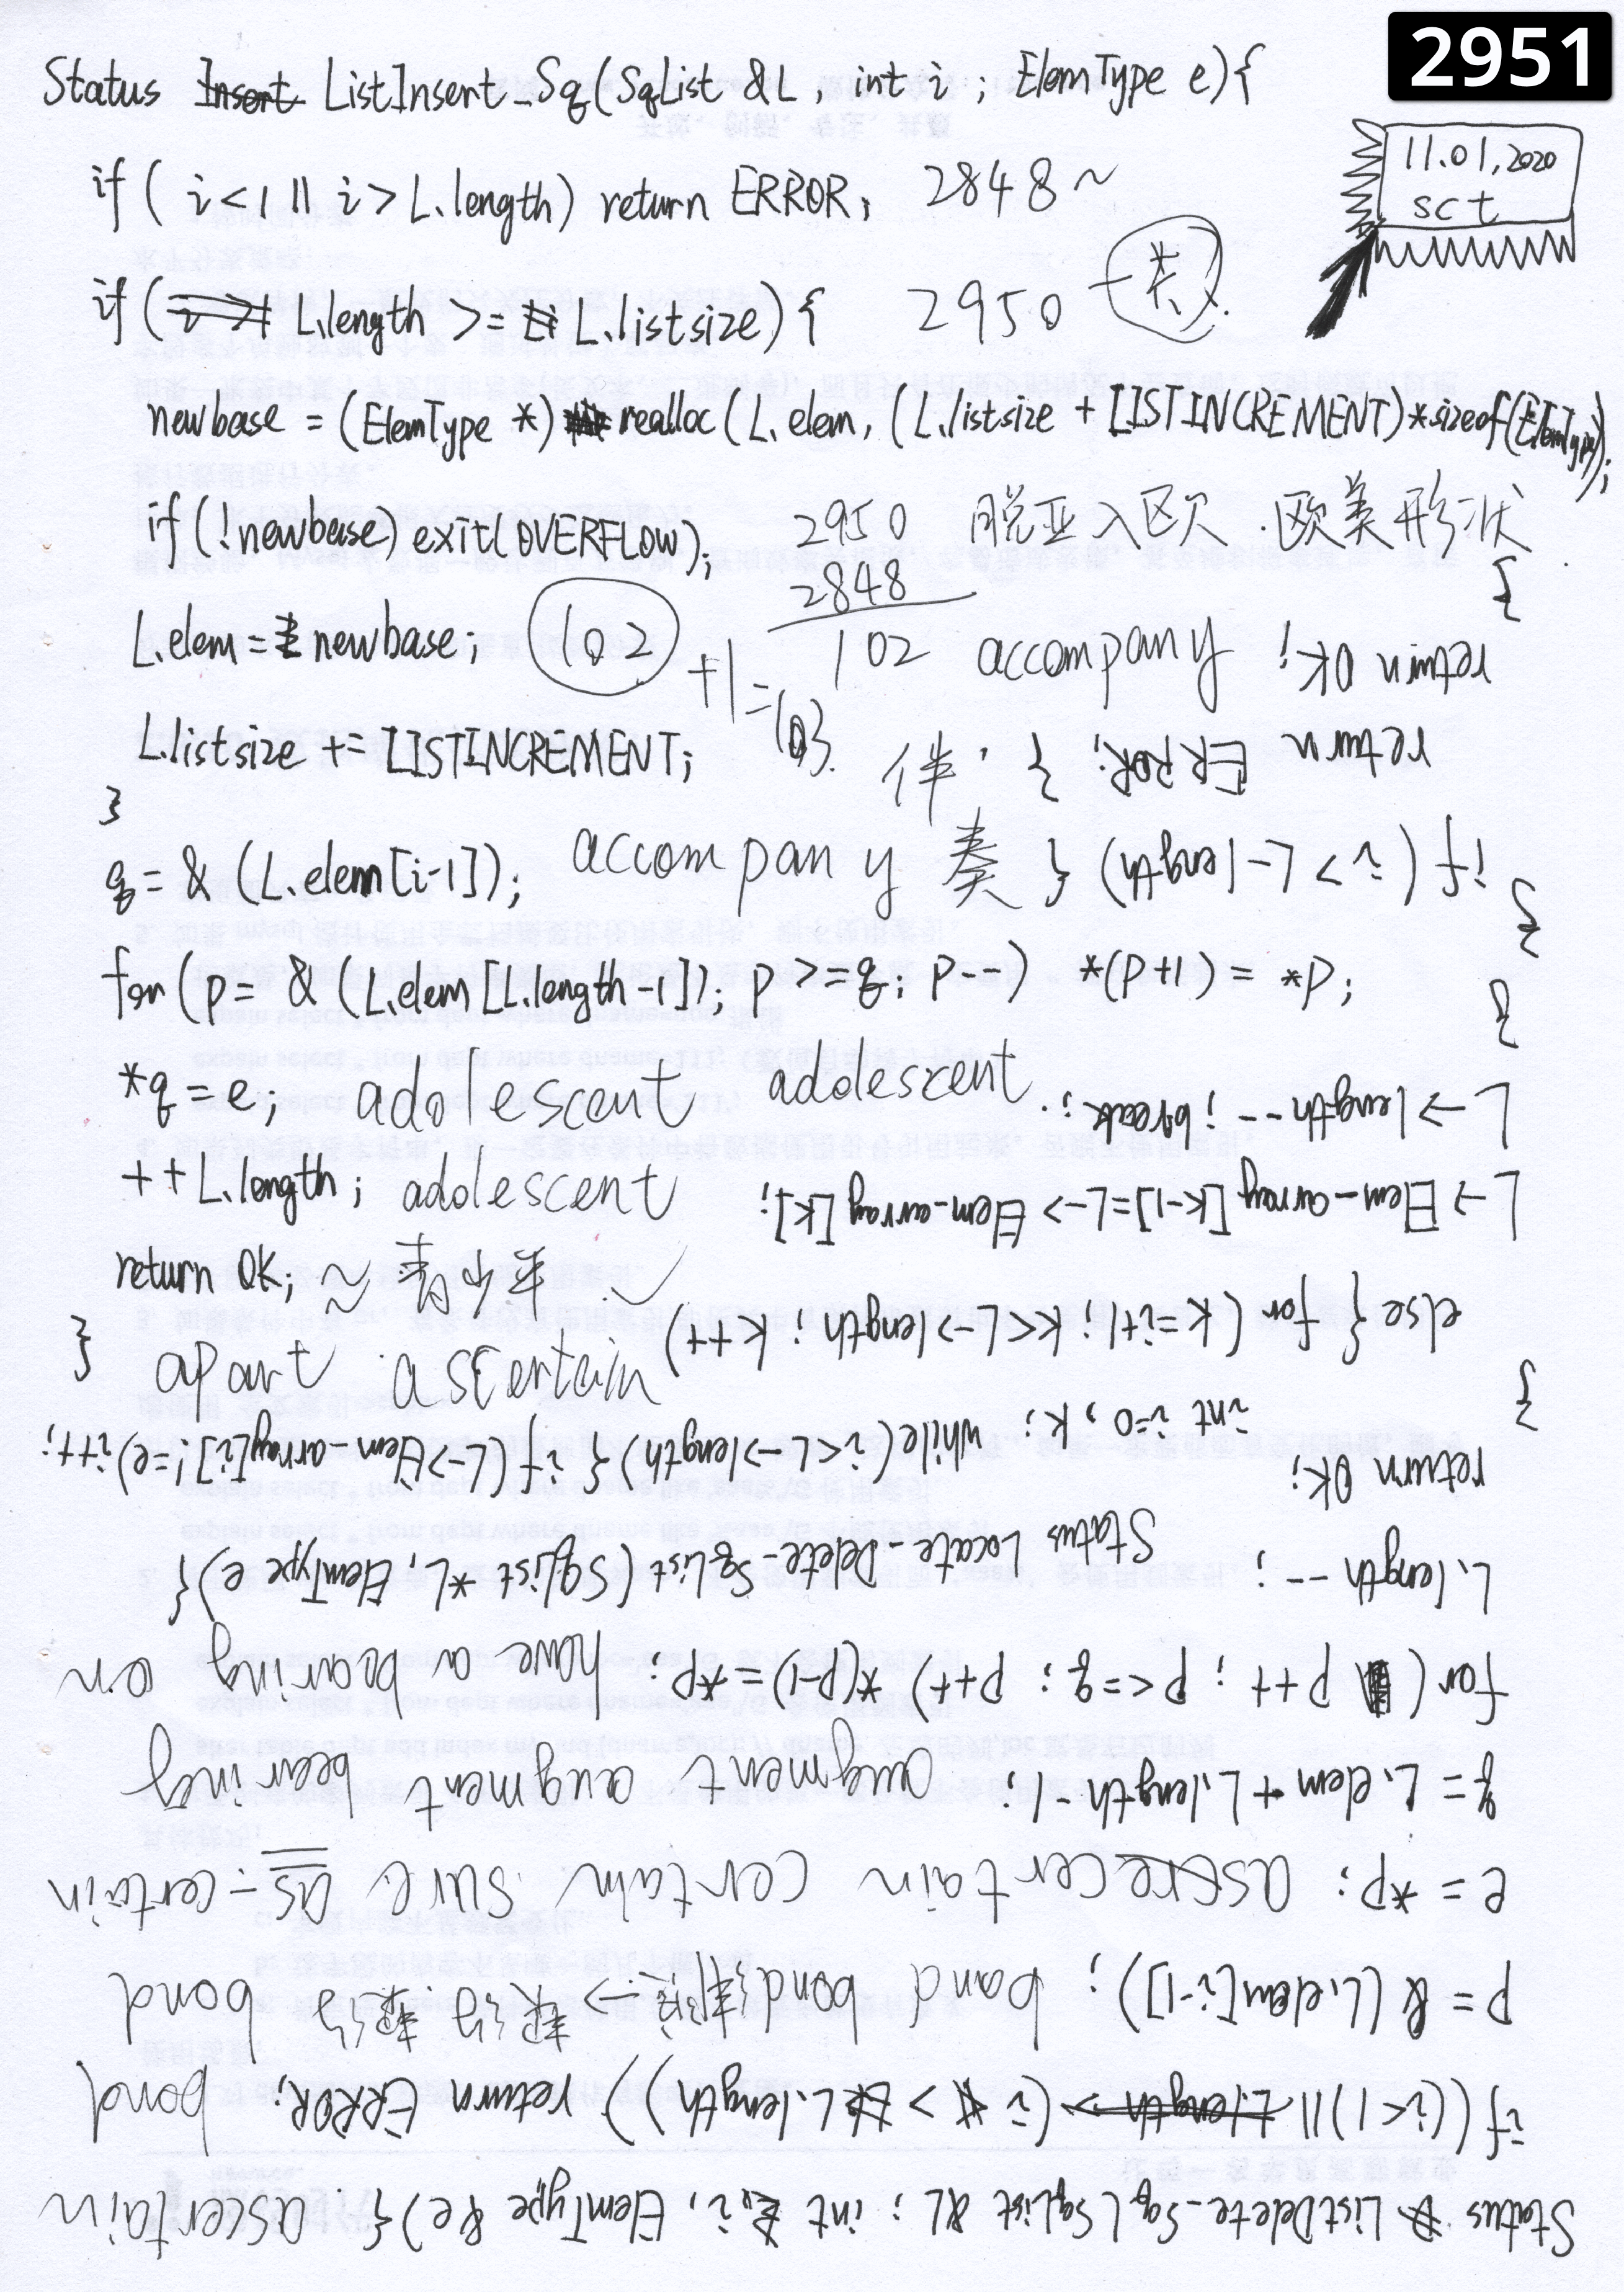 2951
Status Insert ListInsert_Sq(SqList &L, int i; ElemType e){
11.01,2020
sct
if( i<1 || i> L.length) return ERROR; 2848~
if( L.length >= L.listsize){ 2950 一类.
newbase = (ElemType *) realloc (L.elem, (L.listsize + LISTINCREMENT)*sizeof(ElemType));
if(!newbase) exit(OVERFLOW); 2950 脱亚入欧 .欧美形状
2848
L.elem= newbase; 102 +1=103. 102 accompany
L.listsize += LISTINCREMENT; 伴.
}
q= & (L.elem[i-1]); accompany 奏
for(p= & (L.elem[L.length-1]); p>=q; p--) *(p+1)= *p;
*q=e; adolescent adolescent.
++L.length; adolescent
return OK; ≈ 青少年
} apart ascertain
Status ListDelete_Sq(SqList &L; int i, ElemType &e){. ascertain
if((i<1)||L.length> (i > L.length)) return ERROR; bond
p= & (L.elem[i-1]); band bond
e= *p; certain certain sure as-certain
q= L.elem+L.length-1; augment augment bearing
for( p++; p<=q; p++) *(p-1)=*p; have a bearing on
L.length --;
return OK;
}
Status Locate-Delete-SqList(SqList *L, ElemType e){
int i=0, k; while(i<L->length){ if(L->Elem-array[i]!=e)i++;
else{ for(k=i+1; k<L->length; k++)
L->Elem-array[k-1]=L->Elem-array[k];
L->length--; break;
}
}
if(i>L-length){
return ERROR; }
return OK;
}